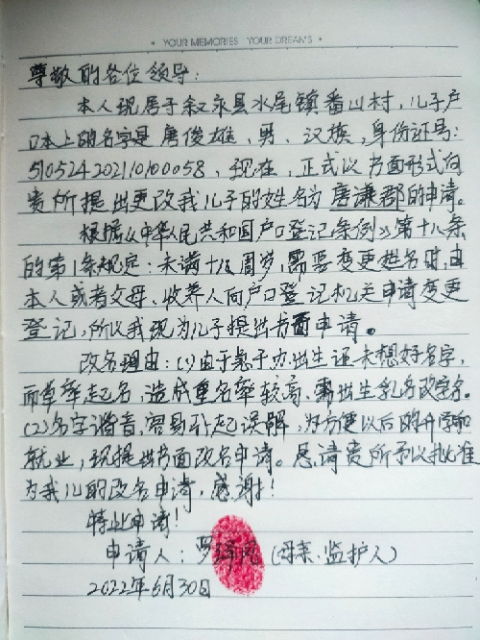 YOUR MEMORIES YOUR DREAMS
尊敬的各位领导:
本人现居于叙永县水尾镇番山村,儿子户
口本上的名字是唐俊雄,男、汉族,身份证号:
510524202110100058,现在,正式以书面形式向
贵所提出更改我儿子的姓名为唐谦郡的申请。
根据《中华人民共和国户口登记条例》第十八条
的第1条规定:未满十八周岁,需要变更姓名时,由
本人或者父母、收养人向户口登记机关申请变更
登记,所以我现为儿子提出书面申请。
改名理由:(1)由于急于办出生还未想好名字,
而草率起名,造成重名率较高,需出生乳名改学名。
(2)名字谐音,容易引起误解,为方便以后的升学和
就业,现提出书面改名申请。恳请贵所予以批准
为我儿的改名申请,感谢!
特此申请!
申请人:罗(母亲·监护人)
2022年6月30日